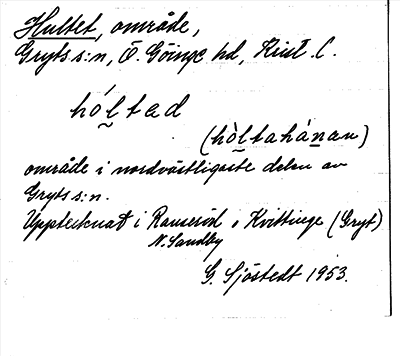 Hultet, område,
Gryts s:n, Ö. Göinge hd, Krist. l.
hól̰tad
(hòl̰tahánan)
område i nordvästligaste delen av
Gryts s:n.
Upptecknat i Ranseröd o Kvittinge (Gryt)
N. Sandby
G. Sjöstedt 1953.